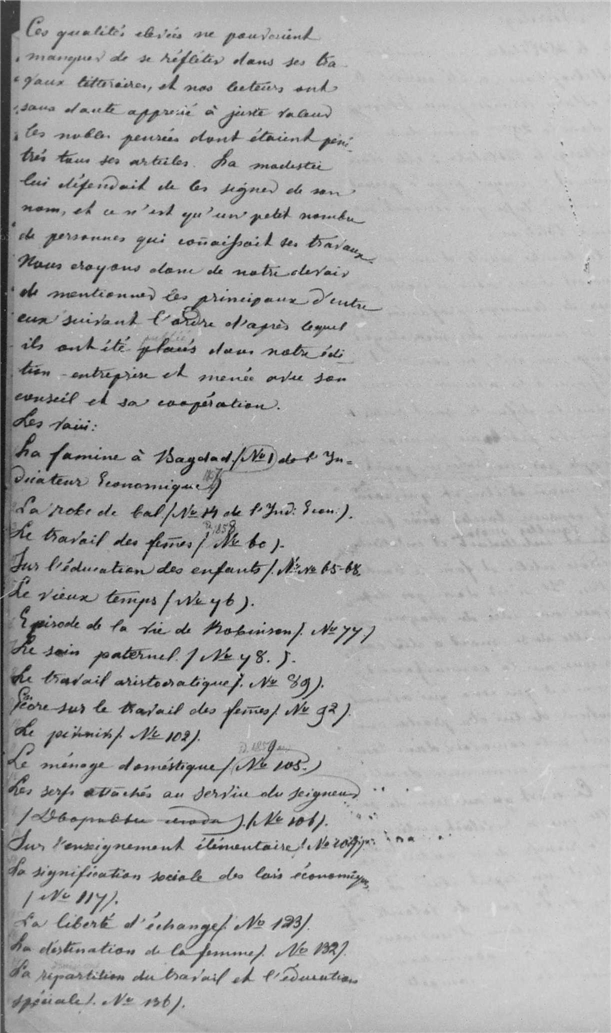 Ces qualités elevées ne pouvaient
manquer de se réfléter dans ses tra
vaux littéraires, et nos lecteurs ont
sans doute apprecié à juste valeur
les nobles pensées dont étaient péné-
trés tous ses articles. La modestie
lui défendait de les signer de son
nom, et ce n'est qu'un petit nombre
de personnes qui connaissait ses travaux.
Nous croyons donc de notre devoir
de mentionner les principaux d'entre
eux suivant l'ordre d'après lequel
ils ont été placés dans notre édi-
tion entreprise et menée avec son
conseil et sa coopération.
Les voici:
La famine à Bagdad (No 1 de l'In-
dicateur Economique)
La robe de bal (No 14 de l'Ind: Econ:).
1858
Le travail des femmes (No 60).
Sur l'éducation des enfants (No No 65-68
Le vieux temps (No 76).
Episode de la vie de Robinson (No 77)
Le soin paternel (No 78.).
Le travail aristocratique (No 89).
Encore sur le travail des femmes (No 92).
Le (No 102).
Le ménage doméstique (No 105.)
Les serfs attachés au service du seigneur
(No 106).
Sur l'enseignement élémentaire (No
La signification sociale des lois économiques
(No 117).
La liberté d'échange (No 123).
La destination de la femme (No 132).
La répartition du travail et l'éducation
spéciale (No 136).